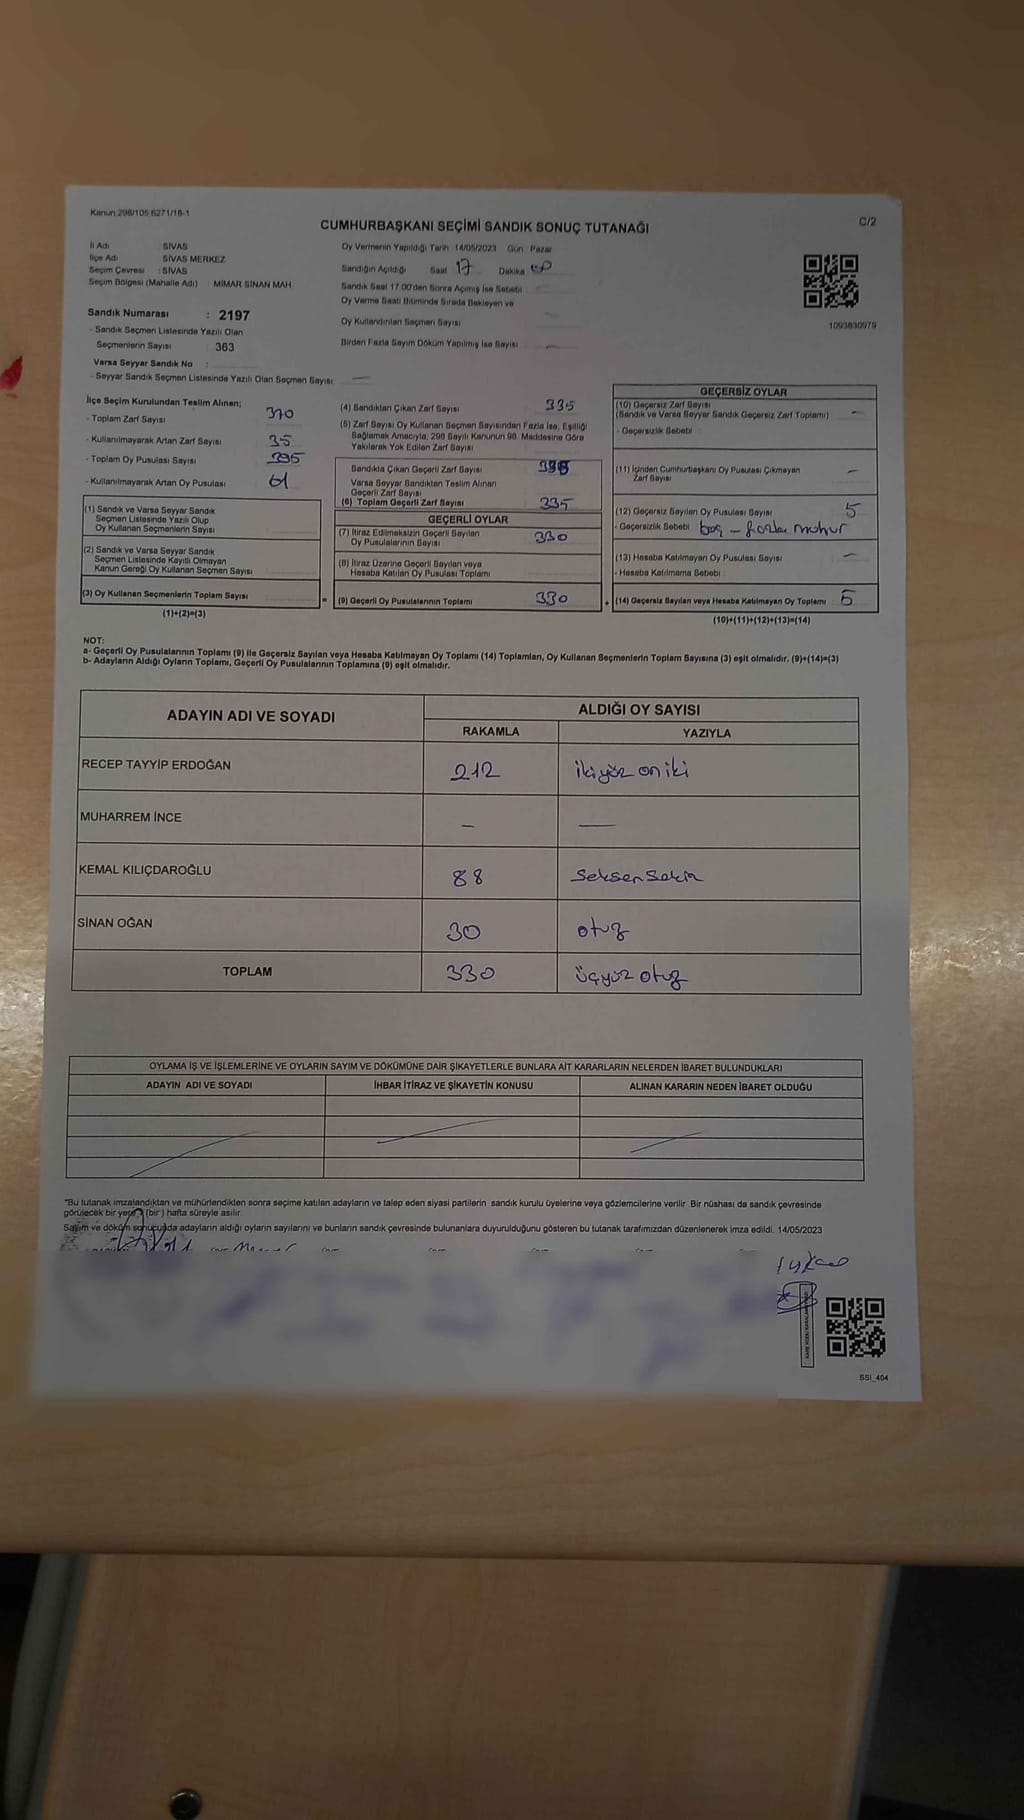 Kanun:298/105 6271/18-1
C/2
CUMHURBAŞKANI SEÇİMİ SANDIK SONUÇ TUTANAĞI
İl Adı SİVAS
İlçe Adı SİVAS MERKEZ
Seçim Çevresi : SİVAS
Seçim Bölgesi (Mahalle Adı) : MİMAR SİNAN MAH.
Sandık Numarası : 2197
- Sandık Seçmen Listesinde Yazılı Olan
Seçmenlerin Sayısı : 363
Varsa Seyyar Sandık No :
- Seyyar Sandık Seçmen Listesinde Yazılı Olan Seçmen Sayısı: —
Oy Vermenin Yapıldığı Tarih 14/05/2023 Gün : Pazar
Sandığın Açıldığı Saat 17 Dakika
Sandık Saat 17.00'den Sonra Açımış İse Sebebi
Oy Verme Saati Bitiminde Sırada Bekleyen ve
Oy Kullandırılan Seçmen Sayısı —
Birden Fazla Sayım Döküm Yapılmış İse Sayısı —
1093830979
İlçe Seçim Kurulundan Teslim Alınan;
- Toplam Zarf Sayısı 370
- Kullanılmayarak Artan Zarf Sayısı 35
- Toplam Oy Pusulası Sayısı 395
- Kullanılmayarak Artan Oy Pusulası 61
(1) Sandık ve Varsa Seyyar Sandık
Seçmen Listesinde Yazılı Olup
Oy Kullanan Seçmenlerin Sayısı
(2) Sandık ve Varsa Seyyar Sandık
Seçmen Listesinde Kayıtlı Olmayan
Kanun Gereği Oy Kullanan Seçmen Sayısı
(3) Oy Kullanan Seçmenlerin Toplam Sayısı =
(1)+(2)=(3)
(4) Sandıktan Çıkan Zarf Sayısı 335
(5) Zarf Sayısı Oy Kullanan Seçmen Sayısından Fazla İse, Eşitliği
Sağlamak Amacıyla, 298 Sayılı Kanunun 98. Maddesine Göre
Yakılarak Yok Edilen Zarf Sayısı
Sandıkta Çıkan Geçerli Zarf Sayısı 335
Varsa Seyyar Sandıktan Teslim Alınan
Geçerli Zarf Sayısı
(6) Toplam Geçerli Zarf Sayısı 335
GEÇERLİ OYLAR
(7) İtiraz Edilmeksizin Geçerli Sayılan
Oy Pusulalarının Sayısı 330
(8) İtiraz Üzerine Geçerli Sayılan veya
Hesaba Katılan Oy Pusulası Toplamı
(9) Geçerli Oy Pusulalarının Toplamı 330 +
GEÇERSİZ OYLAR
(10) Geçersiz Zarf Sayısı
(Sandık ve Varsa Seyyar Sandık Geçersiz Zarf Toplamı) —
- Geçersizlik Sebebi :
(11) İçinden Cumhurbaşkanı Oy Pusulası Çıkmayan
Zarf Sayısı —
(12) Geçersiz Sayılan Oy Pusulası Sayısı 5
- Geçersizlik Sebebi boş - fazla mühür
(13) Hesaba Katılmayan Oy Pusulası Sayısı —
- Hesaba Katılmama Sebebi
(14) Geçersiz Sayılan veya Hesaba Katılmayan Oy Toplamı 5
(10)+(11)+(12)+(13)=(14)
NOT:
a- Geçerli Oy Pusulalarının Toplamı (9) ile Geçersiz Sayılan veya Hesaba Katılmayan Oy Toplamı (14) Toplamları, Oy Kullanan Seçmenlerin Toplam Sayısına (3) eşit olmalıdır. (9)+(14)=(3)
b- Adayların Aldığı Oyların Toplamı, Geçerli Oy Pusulalarının Toplamına (9) eşit olmalıdır.
ADAYIN ADI VE SOYADI ALDIĞI OY SAYISI
RAKAMLA YAZIYLA
RECEP TAYYİP ERDOĞAN 212 ikiyüz on iki
MUHARREM İNCE - —
KEMAL KILIÇDAROĞLU 88 Seksen Sekiz
SİNAN OĞAN 30 otuz
TOPLAM 330 üçyüz otuz
OYLAMA İŞ VE İŞLEMLERİNE VE OYLARIN SAYIM VE DÖKÜMÜNE DAİR ŞİKAYETLERLE BUNLARA AİT KARARLARIN NELERDEN İBARET BULUNDUKLARI
ADAYIN ADI VE SOYADI İHBAR İTİRAZ VE ŞİKAYETİN KONUSU ALINAN KARARIN NEDEN İBARET OLDUĞU
"Bu tutanak imzalandıktan ve mühürlendikten sonra seçime katılan adayların ve talep eden siyasi partilerin sandık kurulu üyelerine veya gözlemcilerine verilir. Bir nüshası da sandık çevresinde
görülecek bir yere (bir) hafta süreyle asılır.
Sayım ve döküm sonucunda adayların aldığı oyların sayılarını ve bunların sandık çevresinde bulunanlara duyurulduğunu gösteren bu tutanak tarafımızdan düzenlenerek imza edildi. 14/05/2023
SSI_404